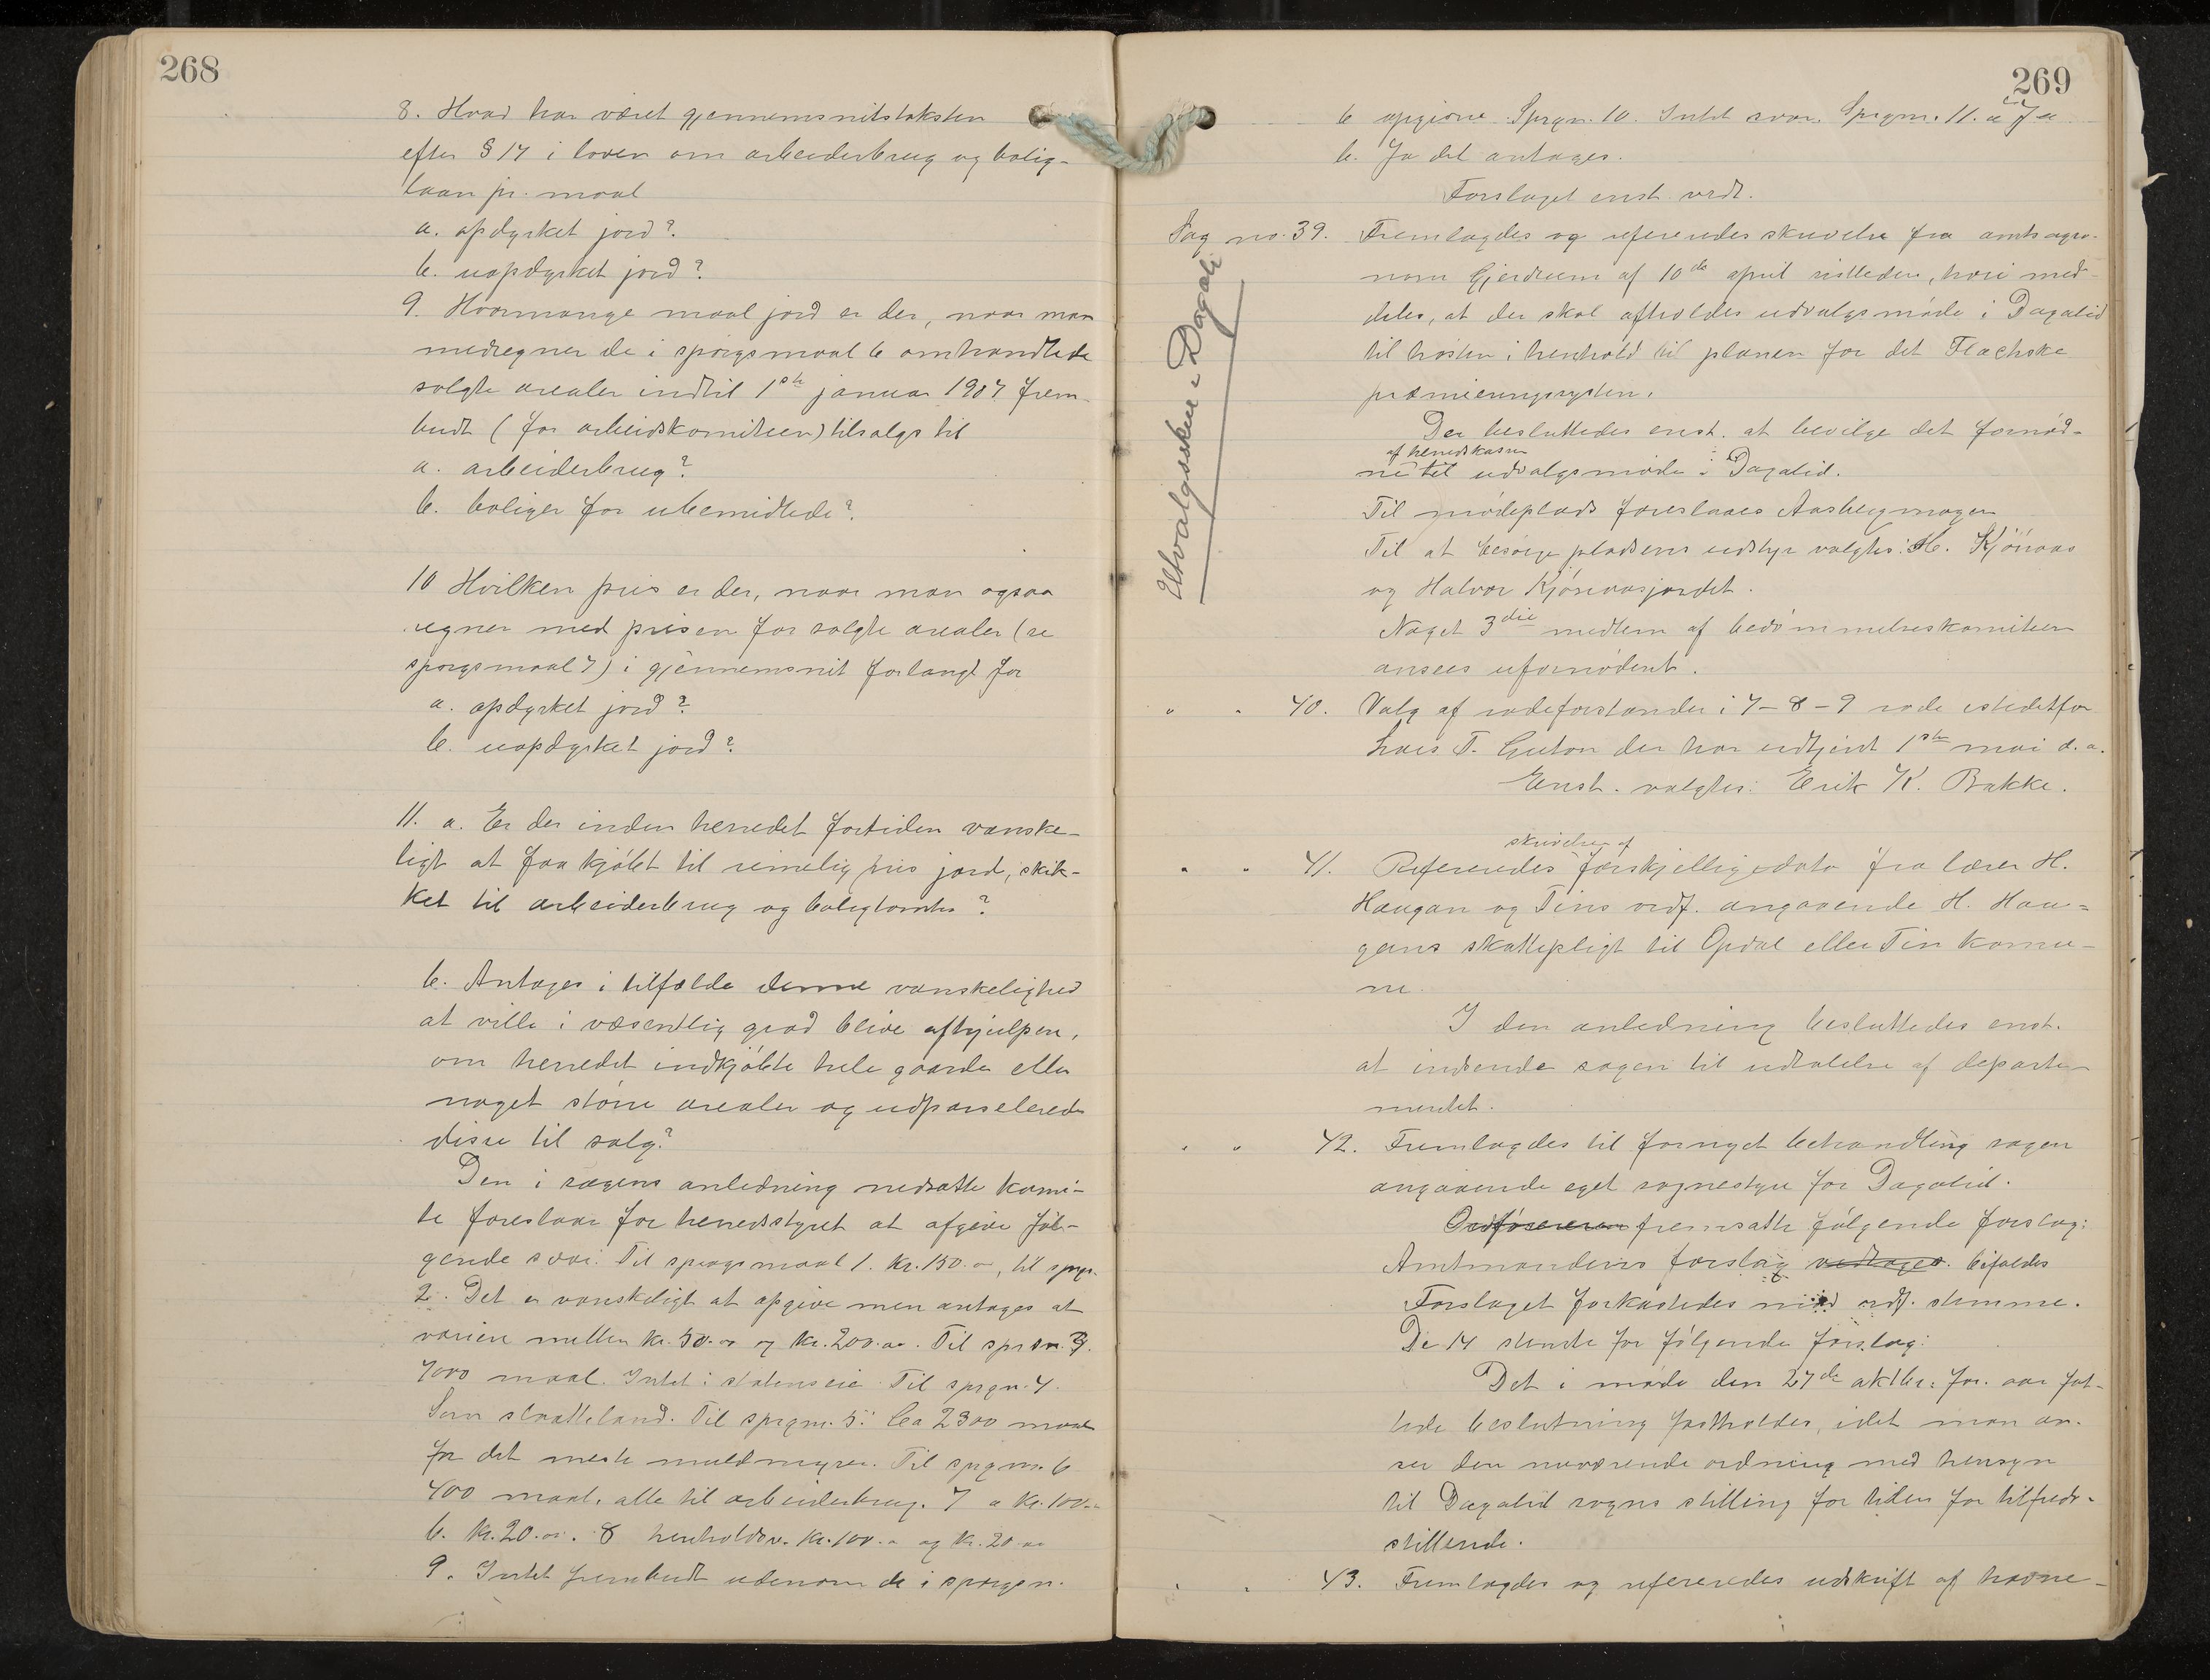 268
8. Hvad har været gjennemsnitstaksten
efter § 14 i loven om arbeiderbrug og bolig-
laan pr. maal
a. opdyrket jord?
b. uopdyrket jord?
9. Hvormange maal jord er der, naar man
medregner de i spørgsmaal 6 omhandlede
solgte arealer indtil 1ste januar 1907 frem-
budt (for arbeidskomiteen) tilsalgs til
a. arbeiderbrug?
b. boliger for ubemidlede?
10 Hvilken pris er der, naar man ogsaa
regner med prisen for solgte arealer (se
spørgsmaal 7) i gjennemsnit forlangt for
a. opdyrket jord?
b. uopdyrket jord?
11. a. Er der inden herredet fortiden vanske-
ligt at faa kjøbt til rimelig pris jord, skik-
ket til arbeiderbrug og boligtomter?
b. Antages i tilfælde denne vanskelighed
at ville i væsentlig grad blive afhjulpen,
om herredet indkjøbte hele gaarde eller
noget større arealer og udparselerede
disse til salg?
Den i sagens anledning nedsatte komi-
te foreslaar for herredsstyret at afgive føl-
gende svar: Til spørgsmaal 1. kr. 150.00, til spgs.
2. Det er vanskeligt at opgive men antages at
variere mellem kr. 50.00 og kr. 200.00. Til sprsm. 3.
7000 maal. Intet i statens eie Til sprgm. 4.
Som slaatteland. Til sprgm. 5: Ca 2300 maal
for det meste muldmyrer. Til sprgm. 6
400 maal, alle til arbeiderbrug. 7 a kr. 100.00
b. kr. 20.00. 8 henholdsv. kr. 100.00 og kr. 20.00
9. Intet frembudt udenom de i spørgsm.
269
6 opgivne. Sprgm. 10. Intet svar. Sprgm. 11. a Ja
b. Ja det antages.
Forslaget enst. vedt.
Sag no. 39. Fremlagdes og refereredes skrivelse fra amtsagro-
nom Gjerdrum af 10de april sistleden, hvori med-
deles, at der skal afholdes udvalgsmøde i Dagalid
til høsten i henhold til planen for det Flachske
præmieringssystem.
Utvalgsskue i Dagali
Der besluttedes enst. at bevilge det fornød-
af herredskassen
ne til udvalgsmøde i Dagalid.
Til mødeplads foreslaaes Aasbergmogen
Til at besørge pladsens udstyr valgtes: H. Kjönaas
og Halvor Kjönaasjordet.
Noget 3die medlem af bedømmelseskomiteen
ansees ufornødent.
" " 40. Valg af rodeforstander i 7-8-9 rode istedetfor
Lars T. Guton der har udtjent 1ste mai d.a.
Enst. valgtes: Erik K. Bakke.
skrivelser af
" " 41. Refereredes forskjellige data fra lærer H.
Haugan og Tins ordf. angaaende H. Hau-
gans skattepligt til Opdal eller Tin komu-
ne.
I den anledning besluttedes enst.
at indsende sagen til udtalelse af departe-
mentet.
" " 42. Fremlagdes til fornyet behandling sagen
angaaende eget sognestyre for Dagalid.
Ordføreren fremsatte følgende forslag:
Amtmandens forslag vedtages. bifaldes
Forslaget forkastedes mod ordf. stemme.
De 14 stemte for følgende forslag:
Det i møde den 27de oktbr. for. aar fat-
tede beslutning fastholdes, idet man an-
ser den nuværende ordning med hensyn
til Dagalid sogns stilling for tiden for tilfreds-
stillende.
" " 43. Fremlagdes og refereredes udskrift af havne-